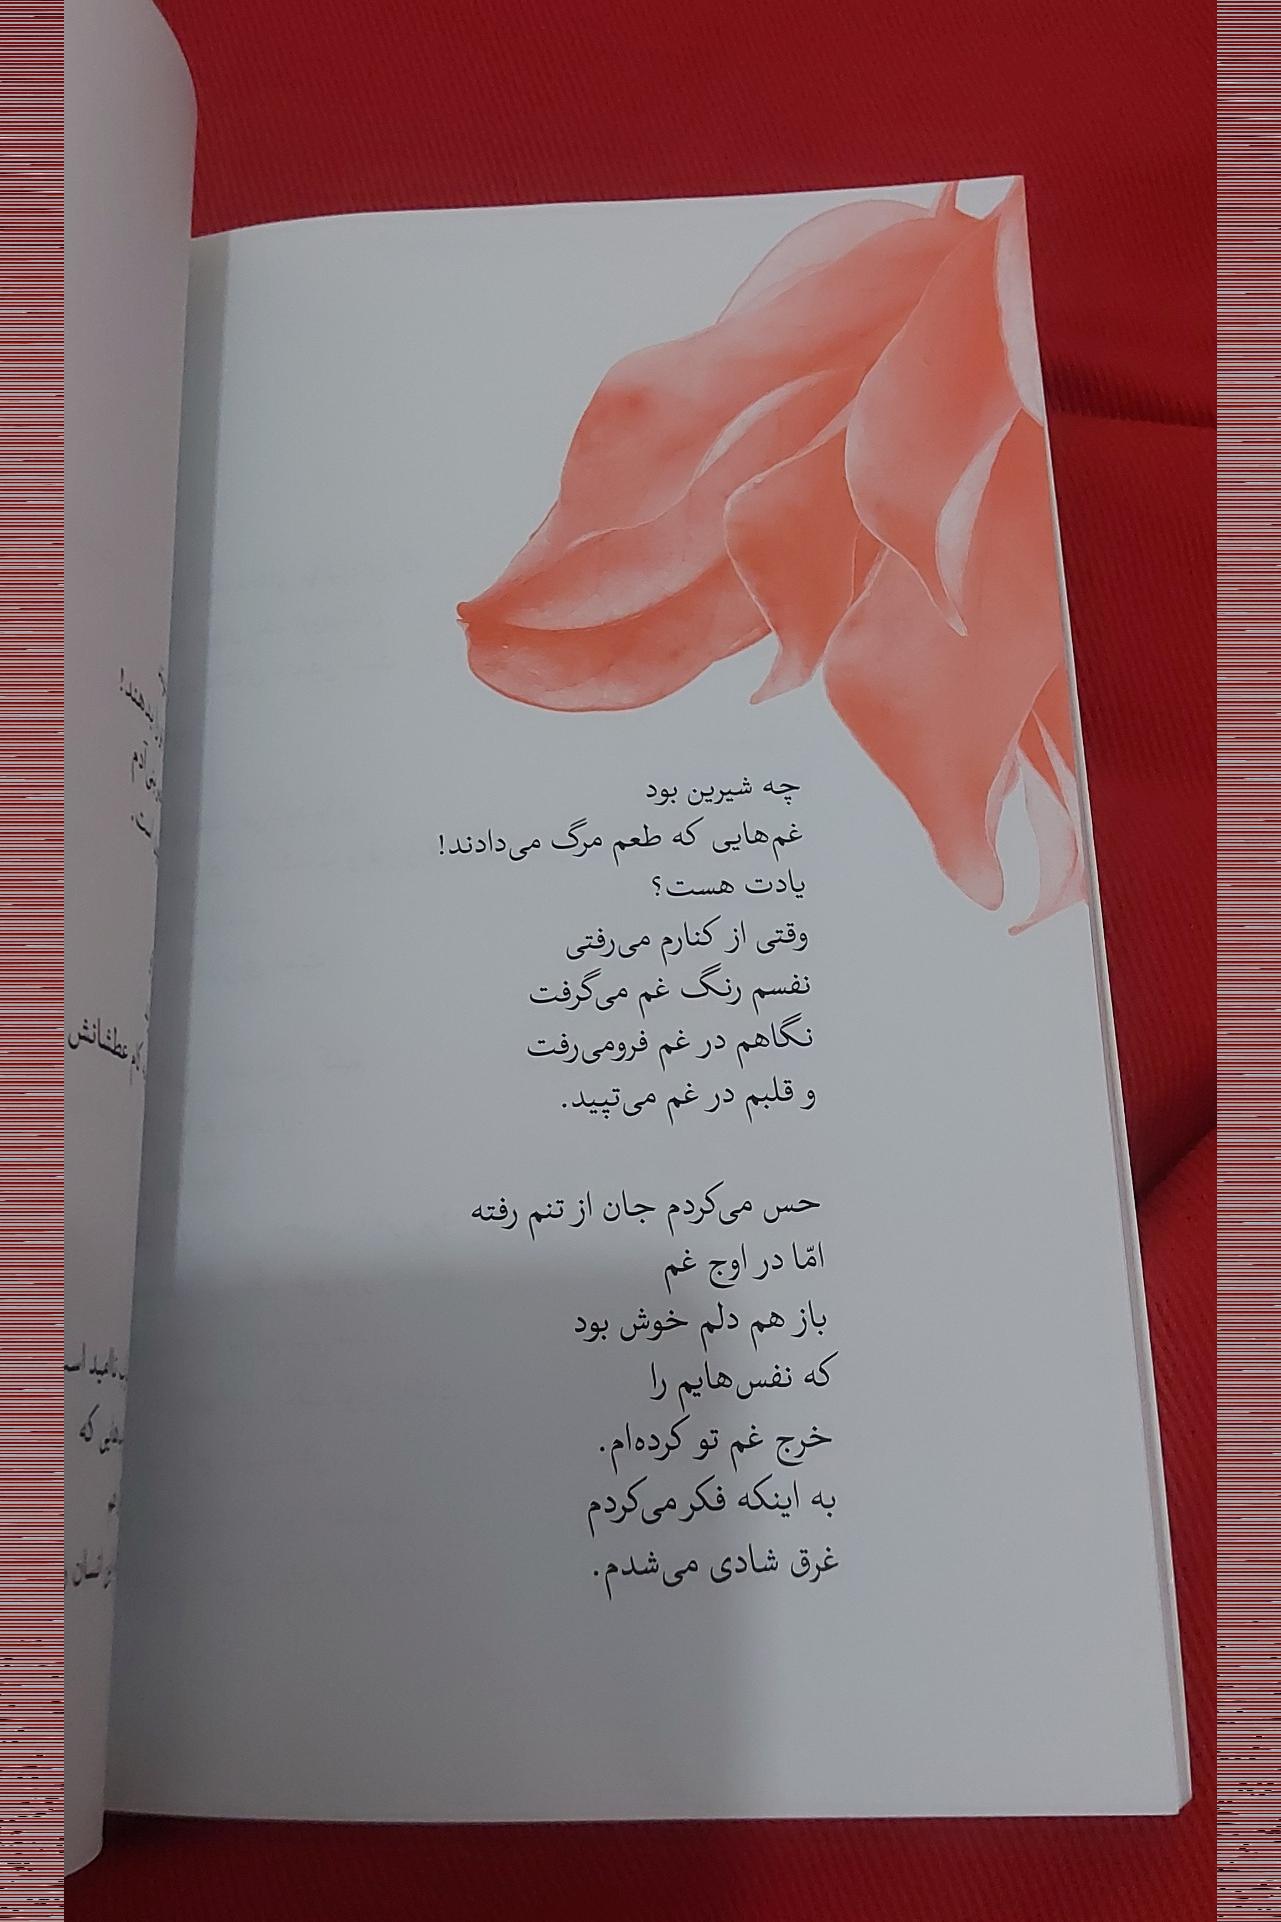 چه شیرین بود
غم‌هایی که طعم مرگ می‌دادند!
یادت هست؟
وقتی از کنارم می‌رفتی
نفسم رنگ غم می‌گرفت
نگاهم در غم فرومی‌رفت
و قلبم در غم می‌تپید.
حس می‌کردم جان از تنم رفته
امّا در اوج غم
باز هم دلم خوش بود
که نفس‌هایم را
خرج غم تو کرده‌ام.
به اینکه فکر می‌کردم
غرق شادی می‌شدم.
بدهند!
آدم
است.
کام عطشانش
ناامید
که
انسان